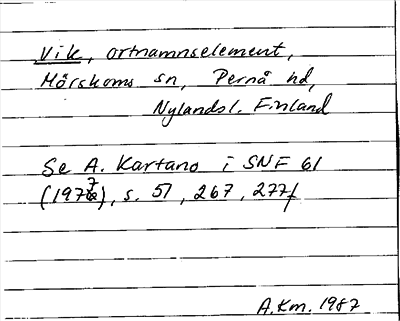 Vik, ortnamnselement,
Mörskoms sn, Pernå hd,
Nylandsl. Finland
Se A. Kartano i SNF 61
(1977), s. 51, 267, 277f
A.Km. 1987